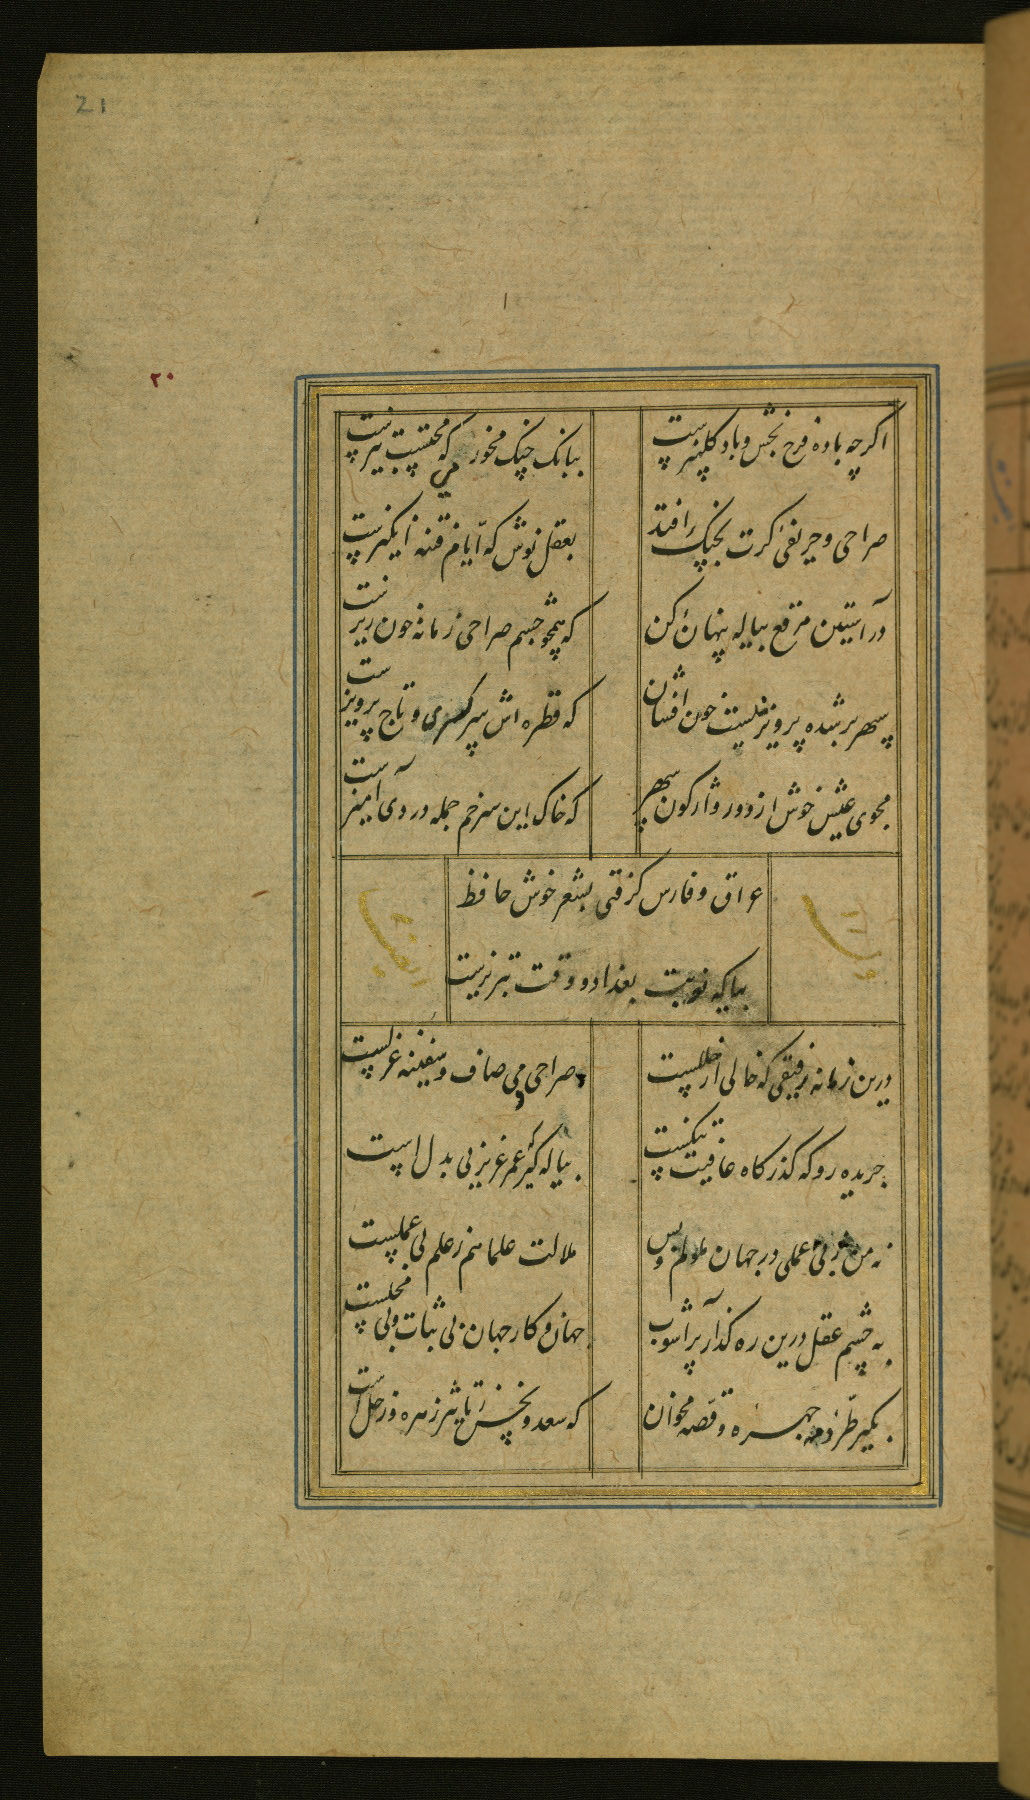 21
۲۰
اگرچه باده فرح بخش و باد گلبیزست
ببانک چنک مخور می که محتسب تیزست
صراحی و حریفی کرت بچنک افتد
بعقل نوش که ایام فتنه انکیزست
در آستین مرقع پیاله پنهان کن
که همچو چشم صراحی زمانه خون ریزست
سپهر بر شده پرویزنیست خون افشان
که قطره اش سر کسری و تاج پرویزست
مجوی عیش خوش از دور واژکون سپهر
که خاک این سر خم جمله دردی آمیزست
عراق و فارس کرفتی بشعر خوش حافظ
بیا که نوبت بغداد و وقت تبریزست
وله
ایضا
درین زمانه رفیقی که خالی از خللست
صراحی می صاف و سفینه غزلست
جریده رو که گذرکاه عافیت تنکست
پیاله گیر که عمر عزیز بی بدل است
نه من ز بی عملی در جهان ملولم و بس
ملالت علما هم ز علم بی عملست
به چشم عقل درین ره گذار پر آشوب
جهان و کار جهان بی ثبات و بی محلست
بگیر طره مه چهره و قصه مخوان
که سعد و نحس ز تاثیر زهره و زحل است